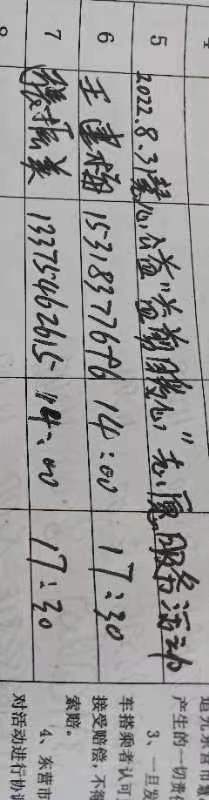 5 2022.8.31慧心公益“益剪暖心”志愿服务活动
6 王建梅 15318377676 14:00 17:30
7 张振美 13375462615 14:00 17:30
8
产生的一切责
3、一旦发
车搭乘者认可
接受赔偿，不得
索赔。
4、东营市
对活动进行协